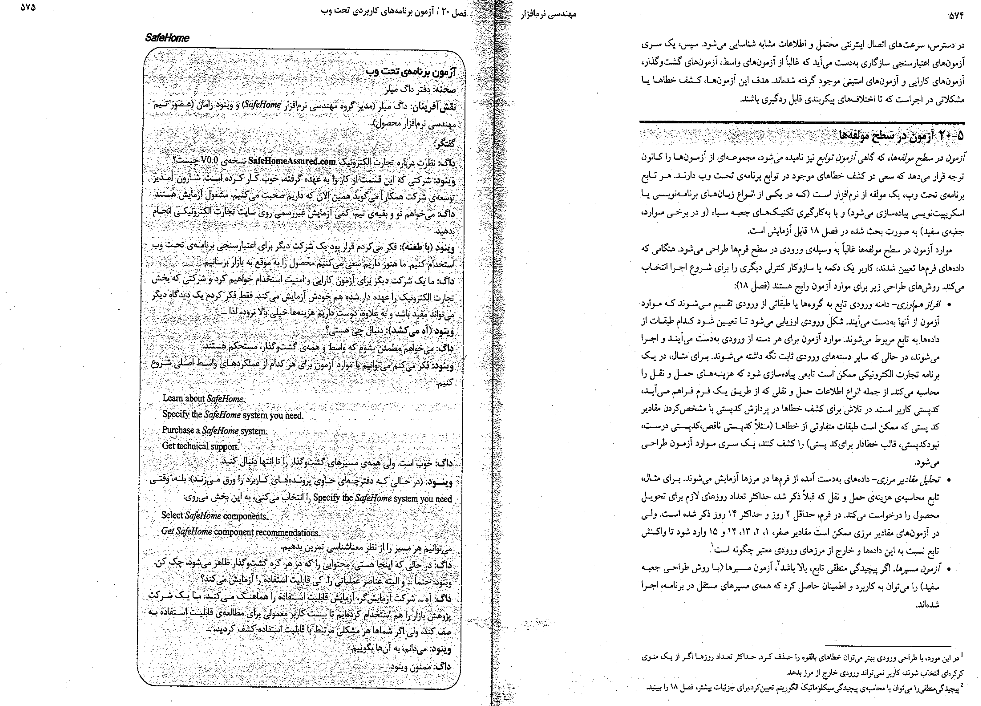 ۵۷۴
مهندسی نرم‌افزار
در دسترس، سرعت‌های اتصال اینترنتی محتمل و اطلاعات مشابه شناسایی می‌شود. سپس، یک سری
آزمون‌های اعتبارسنجی سازگاری به‌دست می‌آید که غالباً از آزمون‌های واسط، آزمون‌های گشت‌وگذار،
آزمون‌های کارایی و آزمون‌های امنیتی موجود گرفته شده‌اند. هدف این آزمون‌ها، کشف خطاها یا
مشکلاتی در اجراست که تا اختلاف‌های پیکربندی قابل ردگیری باشند.
۲۰-۵ آزمون در سطح مولفه‌ها
آزمون در سطح مولفه‌ها، که گاهی آزمون توابع نیز نامیده می‌شود، مجموعه‌ای از آزمون‌ها را کانون
توجه قرار می‌دهد که سعی در کشف خطاهای موجود در توابع برنامه‌ی تحت وب دارند. هر تابع
برنامه‌ی تحت وب، یک مولفه از نرم‌افزار است (که در یکی از انواع زبان‌های برنامه‌نویسی یا
اسکریپت‌نویسی پیاده‌سازی می‌شود) و با به‌کارگیری تکنیک‌های جعبه سیاه (و در برخی موارد،
جعبه‌ی سفید) به صورت بحث شده در فصل ۱۸ قابل آزمایش است.
موارد آزمون در سطح مولفه‌ها غالباً به وسیله‌ی ورودی در سطح فرم‌ها طراحی می‌شود. هنگامی که
داده‌های فرم‌ها تعیین شدند، کاربر یک دکمه یا سازوکار کنترلی دیگری را برای شروع اجرا انتخاب
می‌کند. روش‌های طراحی زیر برای موارد آزمون رایج هستند (فصل ۱۸):
• افراز هم‌ارزی– دامنه ورودی تابع به گروه‌ها یا طبقاتی از ورودی تقسیم می‌شوند که موارد
آزمون از آنها به‌دست می‌آیند. شکل ورودی ارزیابی می‌شود تا تعیین شود کدام طبقات از
داده‌ها به تابع مربوط می‌شوند. موارد آزمون برای هر دسته از ورودی به‌دست می‌آیند و اجرا
می‌شوند، در حالی که سایر دسته‌های ورودی ثابت نگه داشته می‌شوند. برای مثال، در یک
برنامه تجارت الکترونیکی ممکن است تابعی پیاده‌سازی شود که هزینه‌های حمل و نقل را
محاسبه می‌کند. از جمله انواع اطلاعات حمل و نقلی که از طریق یک فرم فراهم می‌آید،
کدپستی کاربر است. در تلاش برای کشف خطاها در پردازش کدپستی با مشخص‌کردن مقادیر
کد پستی که ممکن است طبقات متفاوتی از خطاها (مثلاً کدپستی ناقص،کدپستی درست،
نبودکدپستی، قالب خطادار برای‌کد پستی) را کشف کنند، یک سری موارد آزمون طراحی
می‌شود.
• تحلیل مقادیر مرزی– داده‌های به‌دست آمده از فرم‌ها در مرزها آزمایش می‌شوند. برای مثال،
تابع محاسبه‌ی هزینه‌ی حمل و نقل که قبلاً ذکر شد، حداکثر تعداد روزهای لازم برای تحویل
محصول را درخواست می‌کند. در فرم، حداقل ۲ روز و حداکثر ۱۴ روز ذکر شده است. ولی
در آزمون‌های مقادیر مرزی ممکن است مقادیر صفر، ۱، ۲، ۱۳، ۱۴ و ۱۵ وارد شود تا واکنش
تابع نسبت به این داده‌ها و خارج از مرزهای ورودی معتبر چگونه است¹.
• آزمون مسیرها. اگر پیچیدگی منطقی تابع، بالا باشد²، آزمون مسیرها (با روش طراحی جعبه
سفید) را می‌توان به کاربرد و اطمینان حاصل کرد که همه‌ی مسیرهای مستقل در برنامه، اجرا
شده‌اند.
¹ در این مورد، با طراحی ورودی بهتر می‌توان خطاهای بالقوه را حذف کرد. حداکثر تعداد روزها اگر از یک منوی
کرکره‌ای انتخاب شوند، کاربر نمی‌تواند ورودی خارج از مرز بدهد.
² پیچیدگی‌منطقی‌را می‌توان با محاسبه‌ی پیچیدگی سیکلوماتیک الگوریتم تعیین‌کرد.برای جزئیات بیشتر، فصل ۱۸ را ببینید.
فصل ۲۰ / آزمون برنامه‌های کاربردی تحت وب
۵۷۵
SafeHome
آزمون برنامه‌ی تحت وب
صحنه: دفتر داگ میلر
نقش آفرینان: داگ میلر (مدیر گروه مهندسی نرم‌افزار SafeHome) و وینود رامان (عضو تیم
مهندسی نرم‌افزار محصول).
گفتگو:
داگ: نظرت درباره تجارت الکترونیک SafeHomeAssured.com نسخه‌ی V0.0 چیست؟
وینود: شرکتی که این قسمت از کار را به عهده گرفته، خوب کار کرده است. شارون [مدیر
توسعه‌ی شرکت همکار] می‌گوید همین الان که داریم صحبت می‌کنیم، مشغول آزمایش هستند.
داگ: می‌خواهم تو و بقیه‌ی تیم، کمی آزمایش غیررسمی روی سایت تجارت الکترونیکی انجام
بدهید.
وینود (با طعنه): فکر می‌کردم قرار بود یک شرکت دیگر برای اعتبارسنجی برنامه‌ی تحت وب
استخدام کنیم. ما هنوز داریم سعی می‌کنیم محصول را به موقع به بازار برسانیم.
داگ: ما یک شرکت دیگر برای آزمون کارایی و امنیت استخدام خواهیم کرد و شرکتی که بخش
تجارت الکترونیک را عهده دار شده هم خودش آزمایش می‌کند. فقط فکر کردم یک دیدگاه دیگر
می‌تواند مفید باشد و به علاوه، دوست داریم هزینه‌ها خیلی بالا نرود، لذا ...
وینود (آه می‌کشد): دنبال چی هستی؟
داگ: می‌خواهم مطمئن بشوم که واسط و همه‌ی گشت‌وگذار، مستحکم هستند.
وینود: فکر می‌کنم می‌توانیم با موارد آزمون برای هر کدام از عملکردهای واسط اصلی شروع
کنیم.
Learn about SafeHome.
Specify the SafeHome system you need.
Purchase a SafeHome system.
Get technical support.
داگ: خوب است. ولی همه‌ی مسیرهای گشت‌وگذار را تا انتها دنبال کنید.
وینود: (در حالی که دفترچه‌ای حاوی پرونده‌های کاربرد را ورق می‌زند): بله، وقتی
Specify the SafeHome system you need را انتخاب می‌کنی، به این بخش می‌روی:
Select SafeHome components.
Get SafeHome component recommendations.
می‌توانیم هر مسیر را از نظر معناشناسی تمرین بدهیم.
داگ: در حالی که اینجا هستی، محتوایی را که در هر گره گشت‌وگذار ظاهر می‌شود، چک کن.
وینود: حتماً ... و البته عناصر عملیاتی را. کی قابلیت استفاده را آزمایش می‌کند؟
داگ: آه ... شرکت آزمایش‌گر، آزمایش قابلیت استفاده را هماهنگ می‌کند. ما یک شرکت
پژوهش بازار را هم استخدام کرده‌ایم تا بیست کاربر معمولی برای مطالعه‌ی قابلیت استفاده به
صف کند، ولی اگر شماها هر مشکلی مرتبط با قابلیت استفاده کشف کردید، ...
وینود: می‌دانم، به آن‌ها بگوییم.
داگ: ممنون وینود.